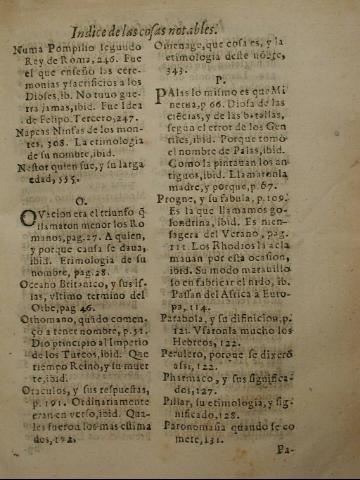 Indice de las cosas notables.
Numa Pompilio segundo
Rey de Roma, 246. Fue
el que enseño las cere-
monias y sacrificios a los
Dioses, ib. No tuuo gue-
rra jamas, ibid. Fue Idea
de Felipo Tercero, 247.
Napeas Ninfas de los mon-
tes, 308. La etimologia
de su nombre, ibid.
Nestor quien fue, y su larga
edad, 335.
O.
OVacion era el triunfo q̃
llamaron menor los Ro
manos, pag. 27. A quien,
y porque causa se daua,
ibid. Etimologia de su
nombre, pag. 28.
Oceano Britanico, y sus is-
las, vltimo termino del
Orbe, pag 46.
Othomano, quãdo comen-
ço a tener nombre, p. 51.
Dio principio al Imperio
de los Turcos, ibid. Que
tiempo Reinò, y su muer
te, ibid.
Oraculos, y sus respuestas,
p. 191. Ordinariamente
eran en verso, ibid. Qua-
les fueron los mas estima
dos, 192.
Omenage, que cosa es, y la
etimologia deste nõbre,
343.
P.
PAlas lo mismo es que Mi
nerua, p 66. Diosa de las
ciẽcias, y de las batallas,
segun el error de los Gen
tiles, ibid. Porque tomò
el nombre de Palas, ibid.
Como la pintauan los an
tiguos, ibid. Llamaronla
madre, y porque, p. 67.
Progne, y su fabula, p. 109.
Es la que llamamos go-
londrina, ibid. Es men-
sagera del Verano, pag.
111. Los Rhodios la acla
mauan por esta ocasion,
ibid. Su modo marauillo
so en fabricar el nido, ib.
Passan del Africa a Euro-
pa, 114.
Parabola, y su difinicion, p.
121. Vsaronla mucho los
Hebreos, 122.
Perulero, porque se dixerõ
assi, 122.
Pharmaco, y sus significa-
dos, 127.
Pillar, su etimologia, y sig-
nificado, 128.
Paronomasia quando se co
mete, 131.
Pa-